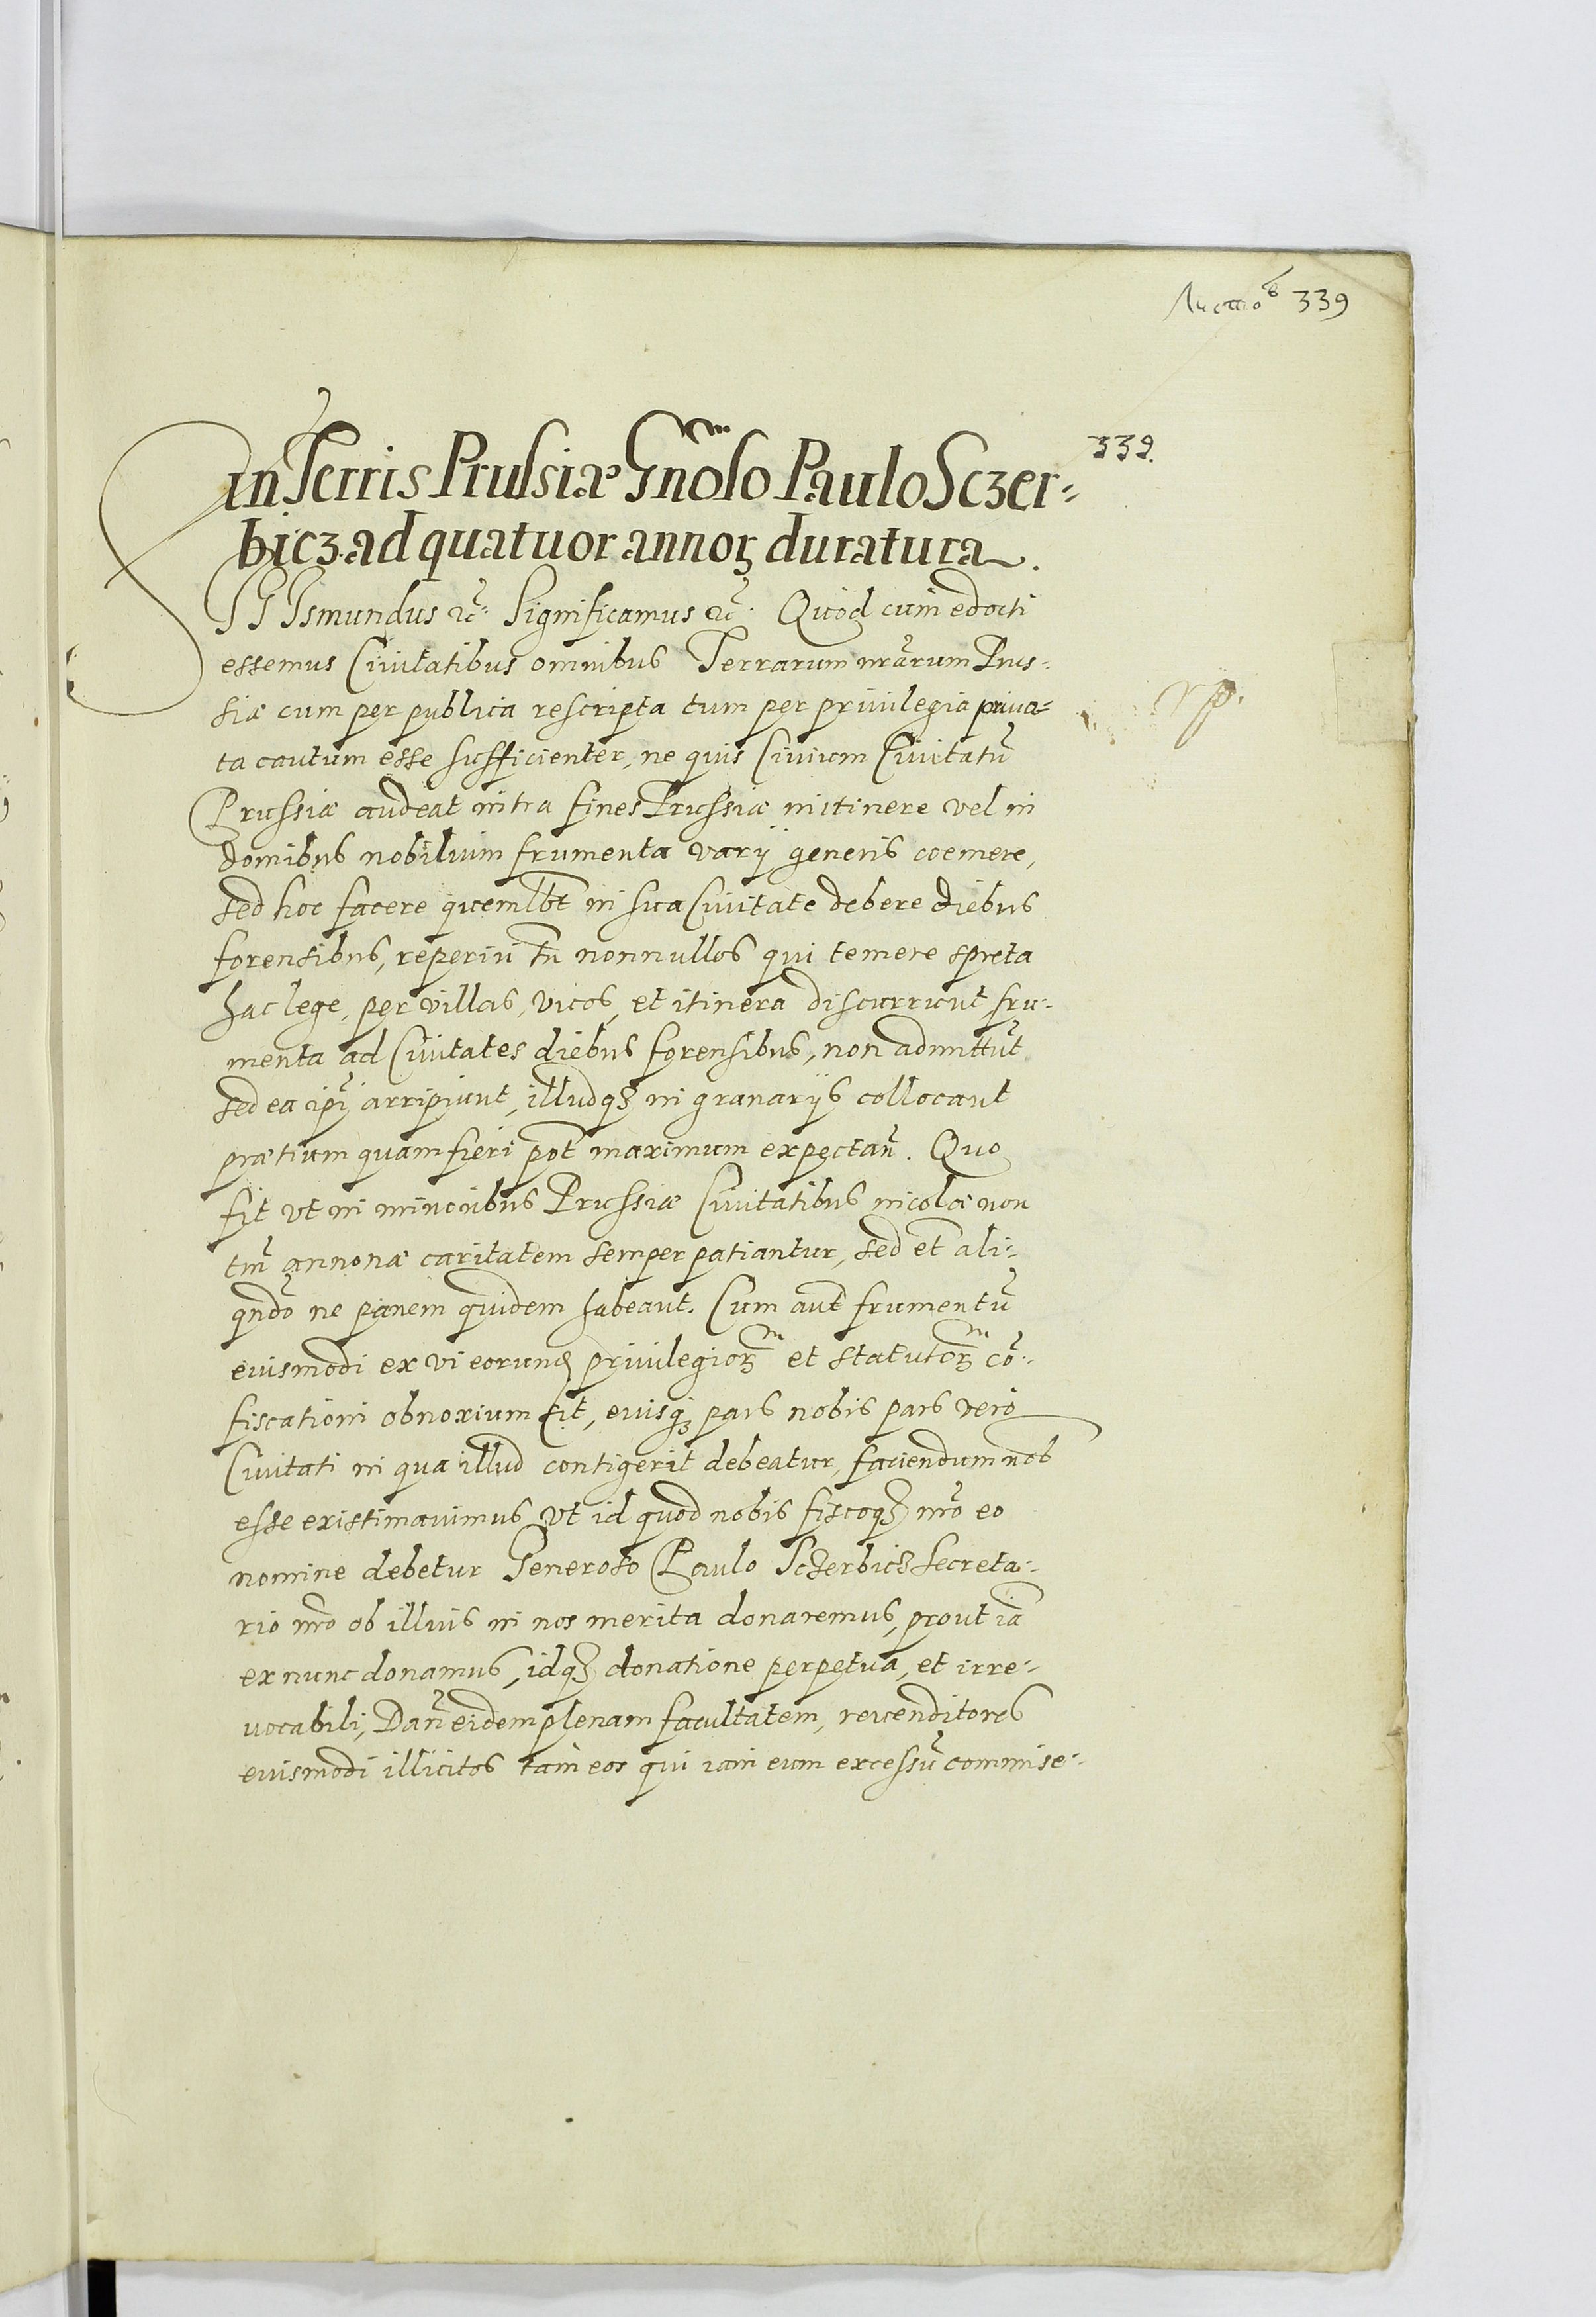 Листов 339
339.
in Terris Prussiæ Gnõso Paulo Sczer-
bicz ad quatuor annoꝝ duratura.
SIGIsmundus ꝛc̃: Significamus ꝛc̃. Quod cum edocti
essemus Ciuitatibus omnibus Terrarum nr̃arum Prus-
siæ cum per publica rescripta tum per priuilegia priua-
ta cautum esse sufficienter, ne quis Ciuium Ciuitatũ
Prussiæ audeat intra fines Prussiæ in itinere vel in
domibus nobilium frumenta varij generis coemere,
sed hoc facere quemlbt in sua Ciuitate debere diebus
forensibus, reperiri tñ nonnullos qui temere spreta
hac lege, per villas, vicos, et itinera discurrunt fru-
menta ad Ciuitates diebus forensibus, non admittũt
sed ea ip̃i arripiunt, illudqꝫ in granarijs collocant
prætium quam fieri pot̃ maximum expectañ. Quo
fit vt in minoribus Prussiæ Ciuitatibus incolæ non
tm̃ annonæ caritatem semper patiantur, sed et̃ ali-
qñdo ne panem quidem habeant. Cum aut̃ frumentũ
euismodi ex vi eorund priuilegioꝝm et statutoꝝm cõ-
fiscationi obnoxium sit, euisqꝫ pars nobis pars vero
Ciuitati in qua illud contigerit debeatur, faciendum nob
esse existimauimus vt id quod nobis fiscoqꝫ nr̃o eo
nomine debetur Generoso Paulo Sczerbicz Secreta-
rio nr̃o ob illius in nos merita donaremus, prout iã
ex nunc donamus, idqꝫ donatione perpetua, et irre-
uocabili, Dañ eidem plenam facultatem, reuenditores
euismodi illicitos tam eos qui iam eum excessũ commise-